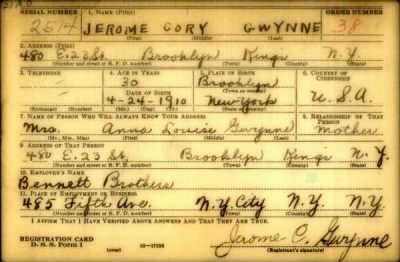 SERIAL NUMBER 1. NAME (Print) ORDER NUMBER
2514 JEROME GORY GWYNNE 38
(First) (Middle) (Last)
2. ADDRESS (Print)
480 E. 23 St. Brooklyn Kings N.Y.
(Number and street or R. F. D. number) (Town) (County) (State)
3. TELEPHONE 4. AGE IN YEARS 5. PLACE OF BIRTH 6. COUNTRY OF CITIZENSHIP
30 Brooklyn
DATE OF BIRTH (Town or county)
4-24-1910 New York U.S.A.
(Exchange) (Number) (Mo.) (Day) (Yr.) (State or country)
7. NAME OF PERSON WHO WILL ALWAYS KNOW YOUR ADDRESS 8. RELATIONSHIP OF THAT PERSON
Mrs. Anna Louise Gwynne Mother
(Mr., Mrs., Miss) (First) (Middle) (Last)
9. ADDRESS OF THAT PERSON
480 E. 23 St. Brooklyn Kings N.Y.
(Number and street or R. F. D. number) (Town) (County) (State)
10. EMPLOYER'S NAME
Bennett Brothers
11. PLACE OF EMPLOYMENT OR BUSINESS
485 Fifth Ave. N.Y. City N.Y. N.Y.
(Number and street or R. F. D. number) (Town) (County) (State)
I AFFIRM THAT I HAVE VERIFIED ABOVE ANSWERS AND THAT THEY ARE TRUE.
REGISTRATION CARD
D. S. S. Form 1 (over) 16-17105 Jerome C. Gwynne
(Registrant's signature)